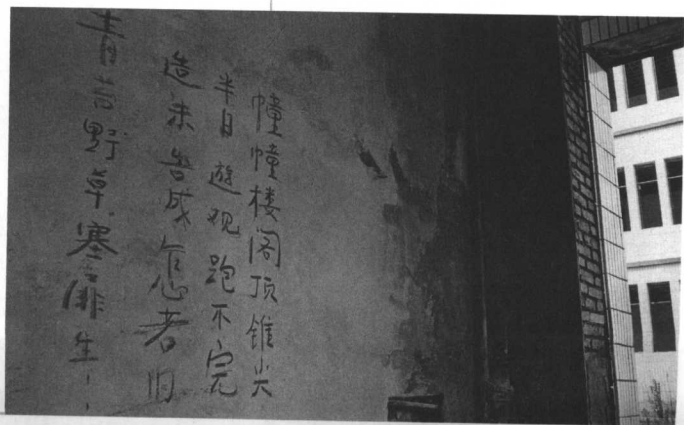 幢幢楼阁顶锥尖
半日遊观跑不完
造未告成怎着旧
青苔野草塞墙生